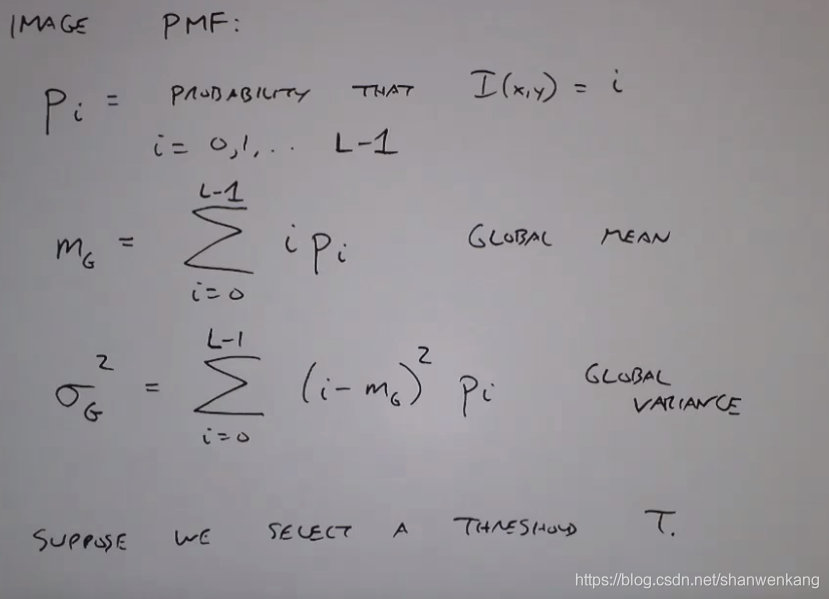 IMAGE PMF:
Pi = PROBABILITY THAT I(x,y) = i
i = 0,1,.. L-1
m_G = \sum_{i=0}^{L-1} i p_i GLOBAL MEAN
σ_G^2 = \sum_{i=0}^{L-1} (i - m_G)^2 p_i GLOBAL VARIANCE
SUPPOSE WE SELECT A THRESHOLD T.
https://blog.csdn.net/shanwenkang